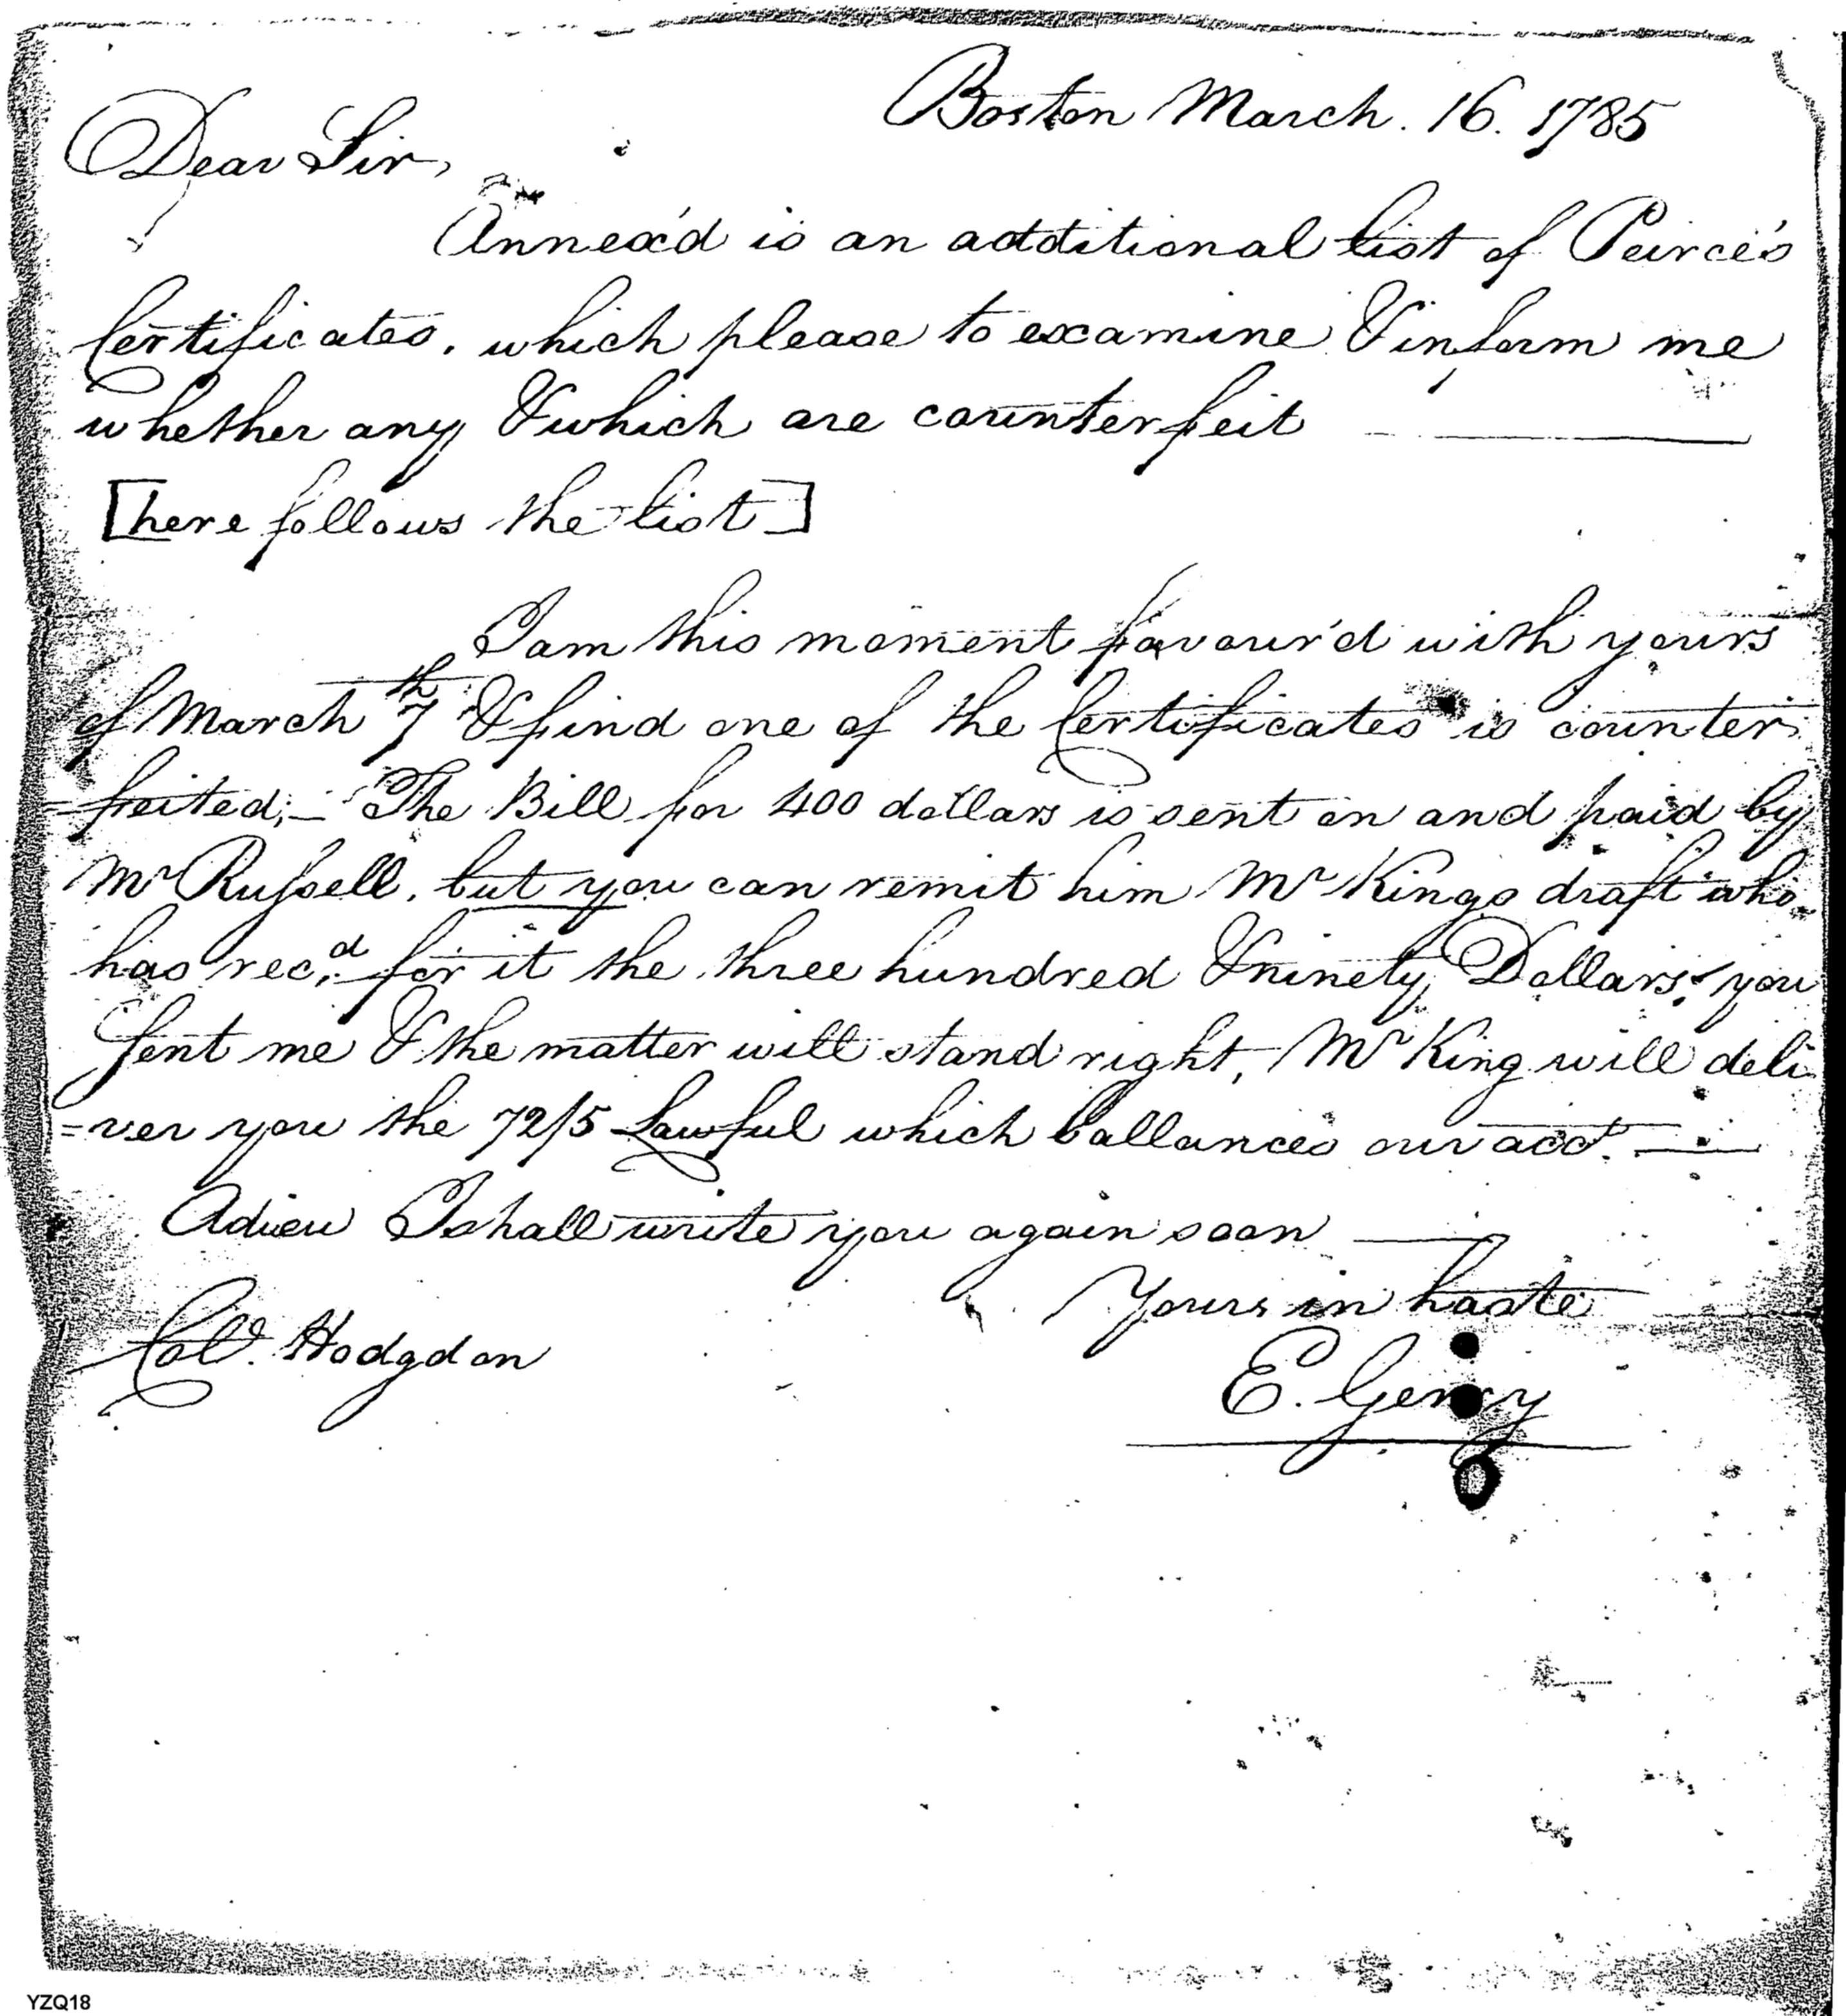 Boston March. 16. 1785
Dear Sir,
Annex'd is an additional list of Peirce's
Certificates, which please to examine & inform me
whether any & which are counterfeit
[here follows the list]
I am this moment favour'd with yours
of March 7th & find one of the Certificates is counter
=feited; _ The Bill for 400 dollars is sent on and paid by
Mr Russell, but you can remit him Mr Kings draft who
has rec,d for it the three hundred & ninety Dollars, you
sent me & the matter will stand right, Mr King will deli
=ver you the 72/5 Lawful which ballances our acct.
Adieu I shall write you again soon
Yours in haste
Colo. Hodgdon
E. Gerry
YZQ18